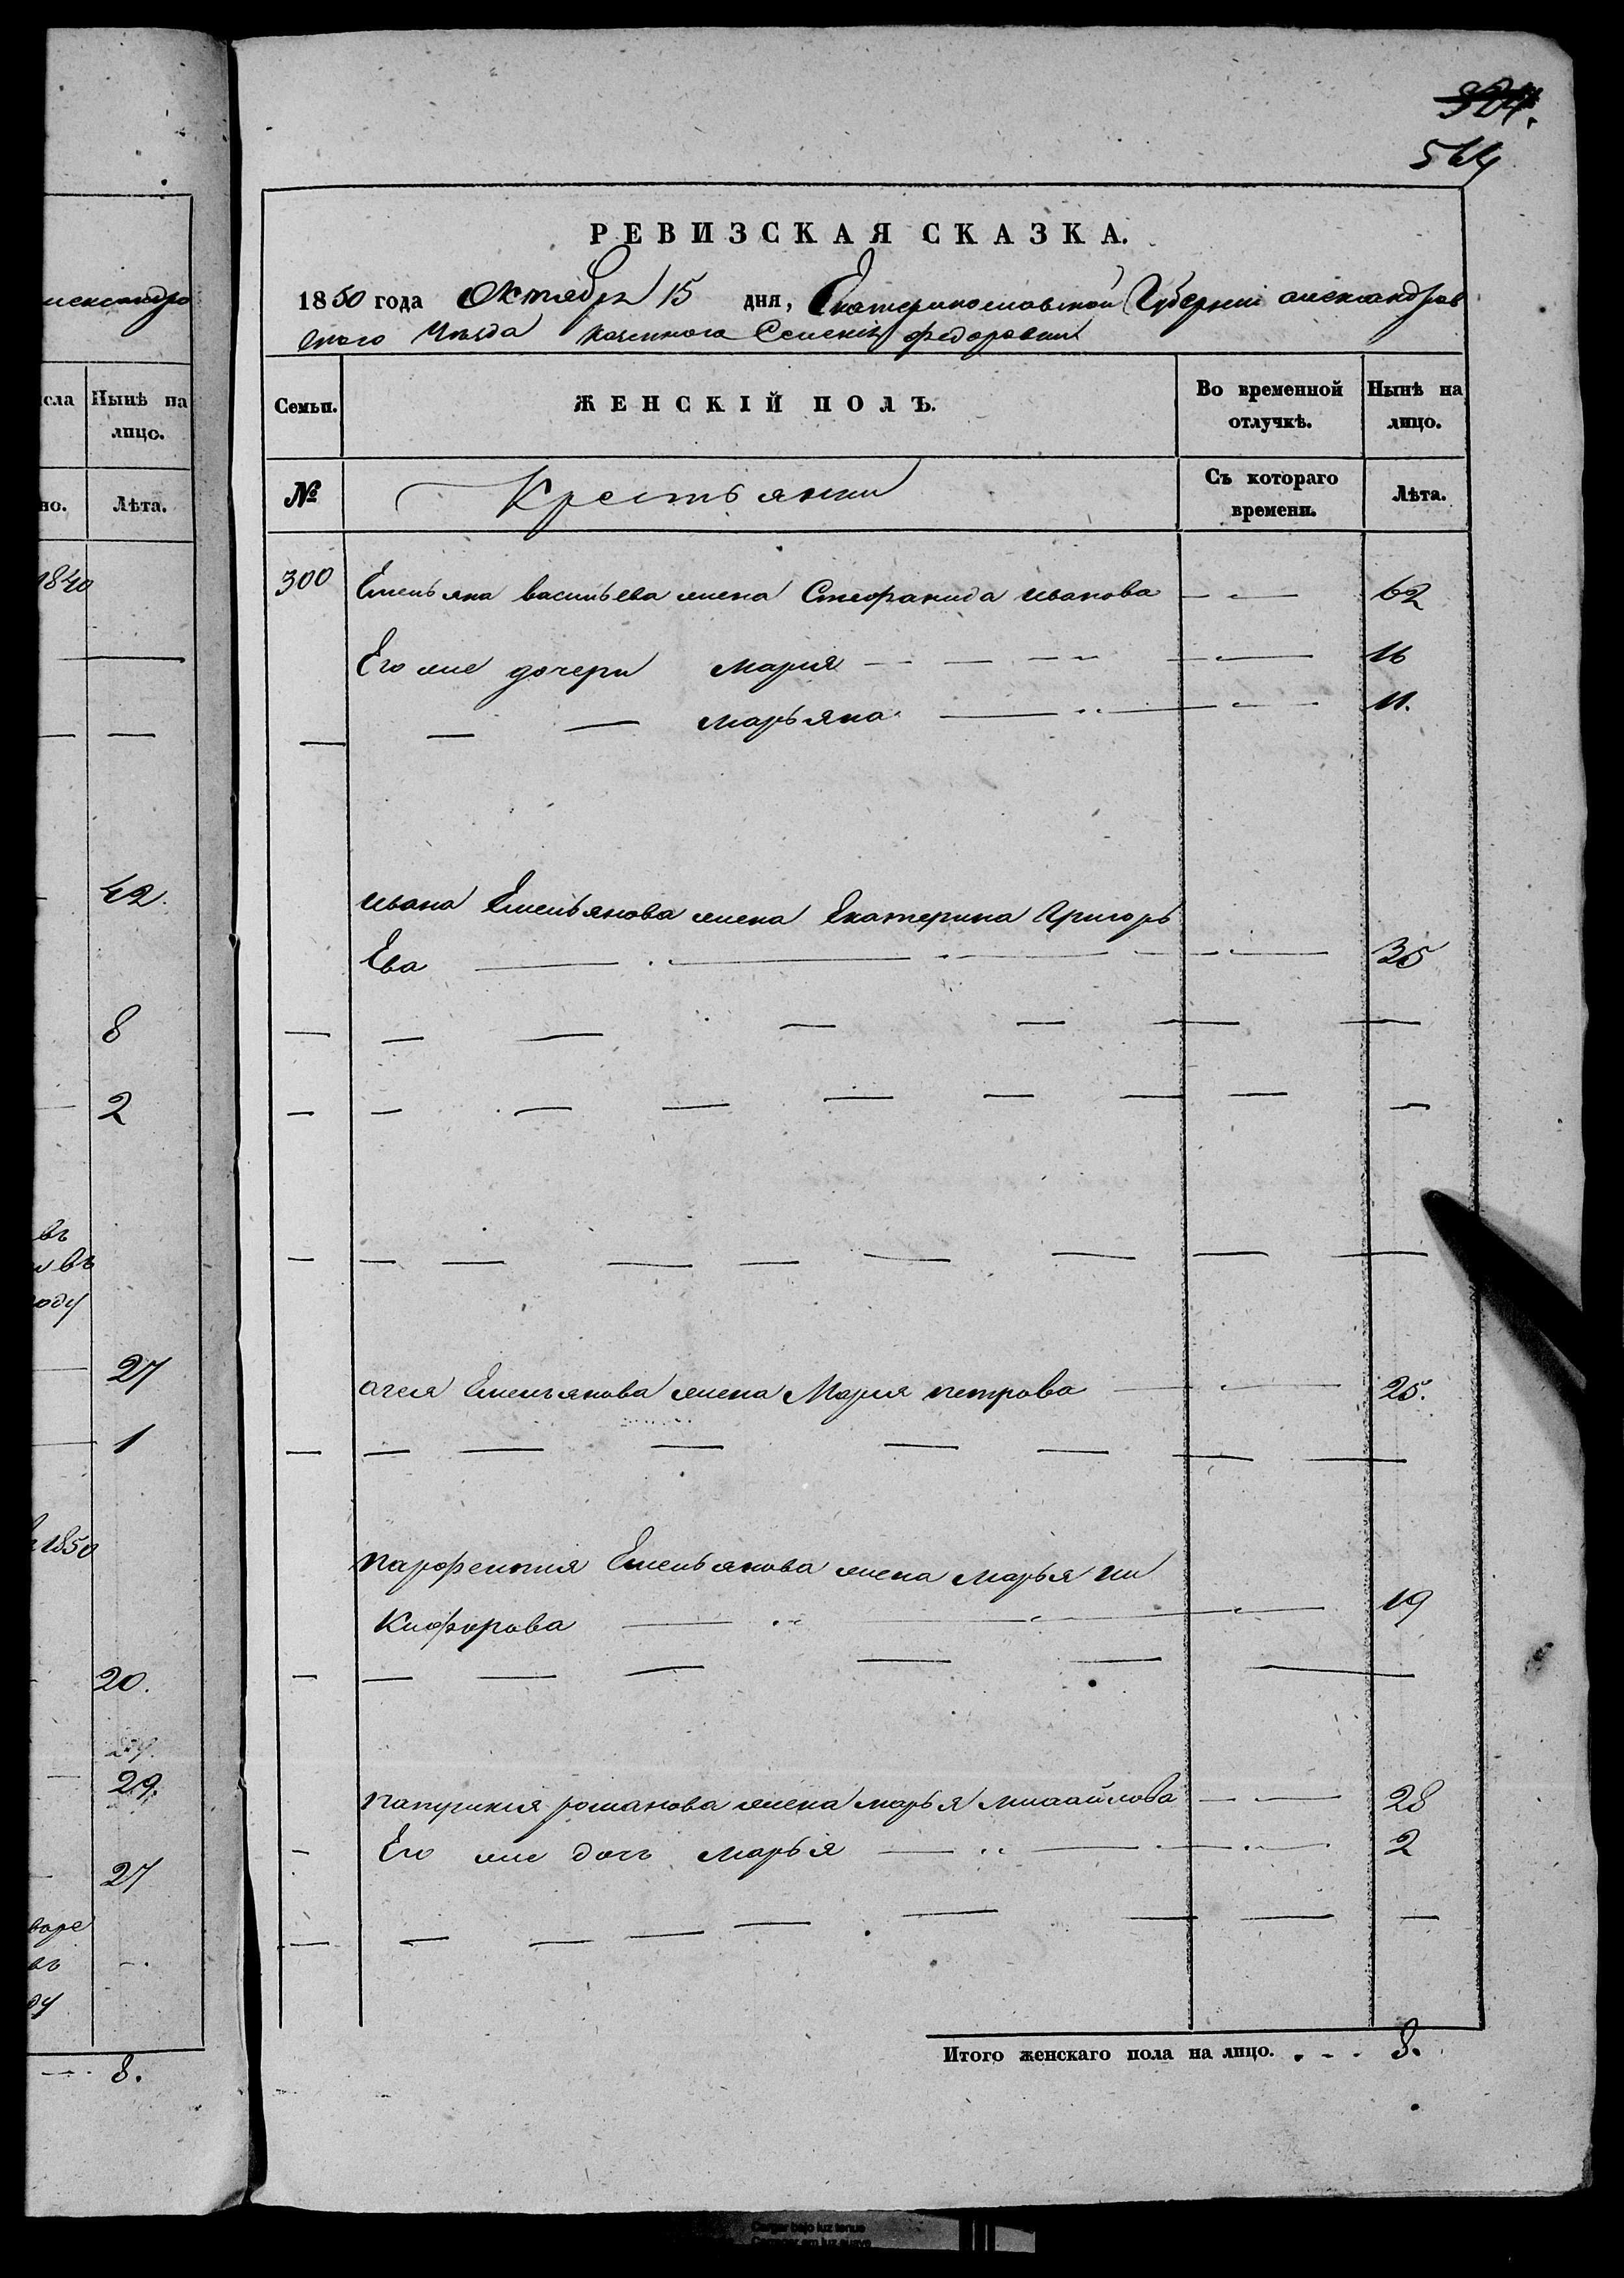 564
александро
РЕВИЗСКАЯ СКАЗКА.
1850 года Октября 15 дня, Екатеринославской Губерніи александров
скаго Уезда казеннаго Селенія федоровки
сла Нынѣ на лицо.
но. Лѣта.
1840
42.
8
2
въ
въ
году
27
1
1850
20.
29.
27
варе
въ
ду
8.
Семьи. ЖЕНСКІЙ ПОЛЪ. Во временной отлучкѣ. Нынѣ на лицо.
№ Крестьянки Съ котораго времени. Лѣта.
300 Емельяна васильева жена Стефанида иванова 62
Его же дочери мария 16
марьяна 11.
ивана Емельянова жена Екатерина Григорь
Ева 35
Емельянова жена Мария петрова 25.
парфентия Емельянова жена марья ни
Кифорова 19
романова жена марья михайлова 28
Его же дочь марья 2
Итого женскаго пола на лицо. 8.